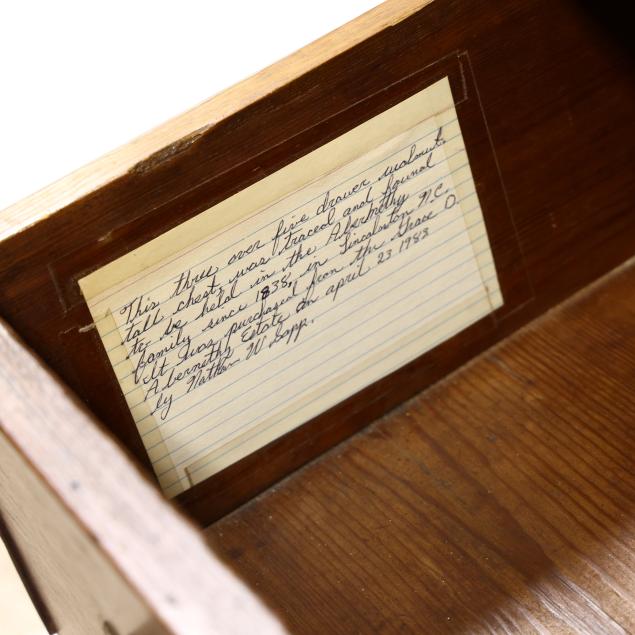 This three over five drawer walnut
tall chest, was traced and found
to be held in the Abernethy
family since 1838, in Lincolnton N.C.
It was purchased from the Grace O.
Abernethy Estate on april 23 1983
by Nathan W Sapp.